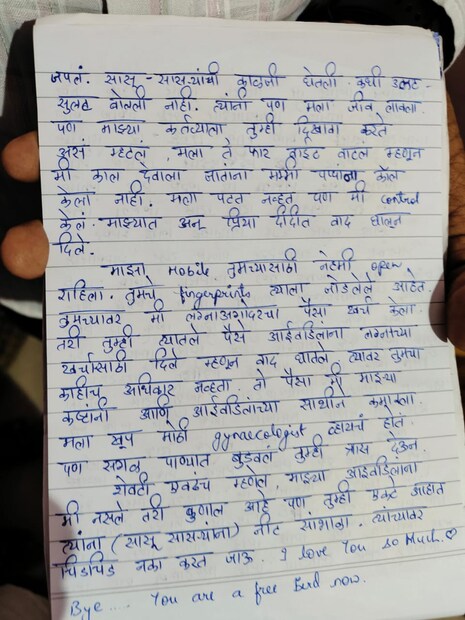 जपलं. सासू-सासऱ्यांची काळजी घेतली. कधी उलट-
सुलट बोलली नाही. त्यांना पण मला जीव लावला.
पण माझ्या कर्तव्याला तुम्ही दिखावा करते
असं म्हटलं, मला ते फार वाईट वाटलं म्हणून
मी काल देवाला जाताना मम्मी पप्पांना कॉल
केला नाही. मला पटत नव्हतं पण मी control
केलं. माझ्यात अन् प्रिया दीदीत वाद घालून
दिले.
माझा Mobile तुमच्यासाठी नेहमी open
राहिला. तुमचे fingerprints त्याला जोडलेले आहेत.
तुमच्यावर मी लग्नाअगोदरचा पैसा खर्च केला.
तरी तुम्ही त्यातले पैसे आईवडिलांना लग्नाच्या
खर्चासाठी दिले म्हणून वाद घातला. त्यावर तुमचा
काहीच अधिकार नव्हता. तो पैसा मी माझ्या
कष्टांनी आणि आईवडिलांच्या साथीने कमावला.
मला खूप मोठी gynaecologist व्हायचं होतं.
पण सगळं पाण्यात बुडवलं तुम्ही त्रास देऊन.
शेवटी एवढंच म्हणेल, माझ्या आईवडिलांना
मी नसले तरी कुणाल आहे पण तुम्ही एकटे आहात
त्यांना (सासू सासऱ्यांना) नीट सांभाळा. त्यांच्यावर
चिडचिड नका करत जाऊ. I love You so Much. ♡
Bye.... You are a free Bird now.